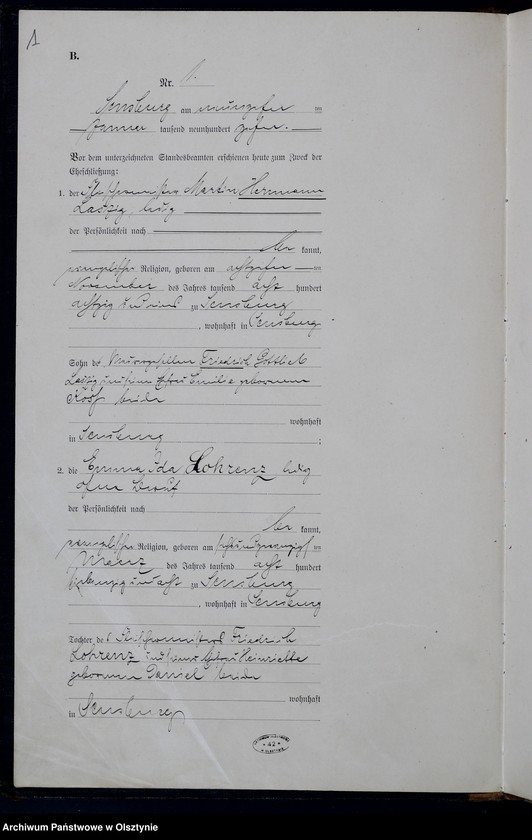 1
B.
Nr. 1.
Sensburg am neunzehnten
Januar tausend neunhundert zehn.
Vor dem unterzeichneten Standesbeamten erschienen heute zum Zweck der
Eheschließung:
1. der Martin Herrmann
ledig
der Persönlichkeit nach
be kannt,
evangelischer Religion, geboren am achtzehnten
November des Jahres tausend acht hundert
achtzig und eins zu Sensburg
, wohnhaft in Sensburg
Sohn des Maurergesellen Friedrich Gottlieb
und seiner Ehefrau Emilie geborenen
beide
wohnhaft
in Sensburg ;
2. die Emma Ida Lohrenz ledig
ohne Beruf
der Persönlichkeit nach
be kannt,
evangelischer Religion, geboren am
März des Jahres tausend acht hundert
und acht zu Sensburg
, wohnhaft in Sensburg
Tochter des Fleischermeisters Friedrich
Lohrenz und seiner Ehefrau Heinriette
geborenen Daniel beide
wohnhaft
in Sensburg
42
Archiwum Państwowe w Olsztynie